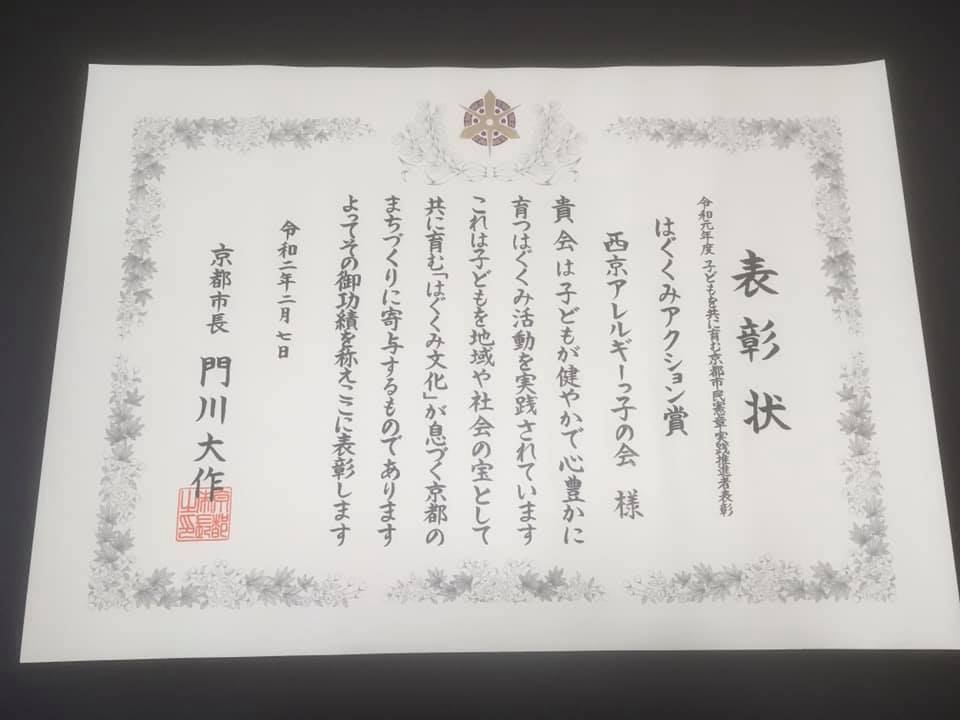 表彰状
令和元年度 子どもを共に育む京都市民憲章実践推進者表彰
はぐくみアクション賞
西京アレルギーっ子の会 様
貴会は子どもが健やかで心豊かに
育つはぐくみ活動を実践されています
これは子どもを地域や社会の宝として
共に育む「はぐくみ文化」が息づく京都の
まちづくりに寄与するものであります
よってその御功績を称えここに表彰します
令和二年二月七日
京都市長 門川大作
京都市長之印